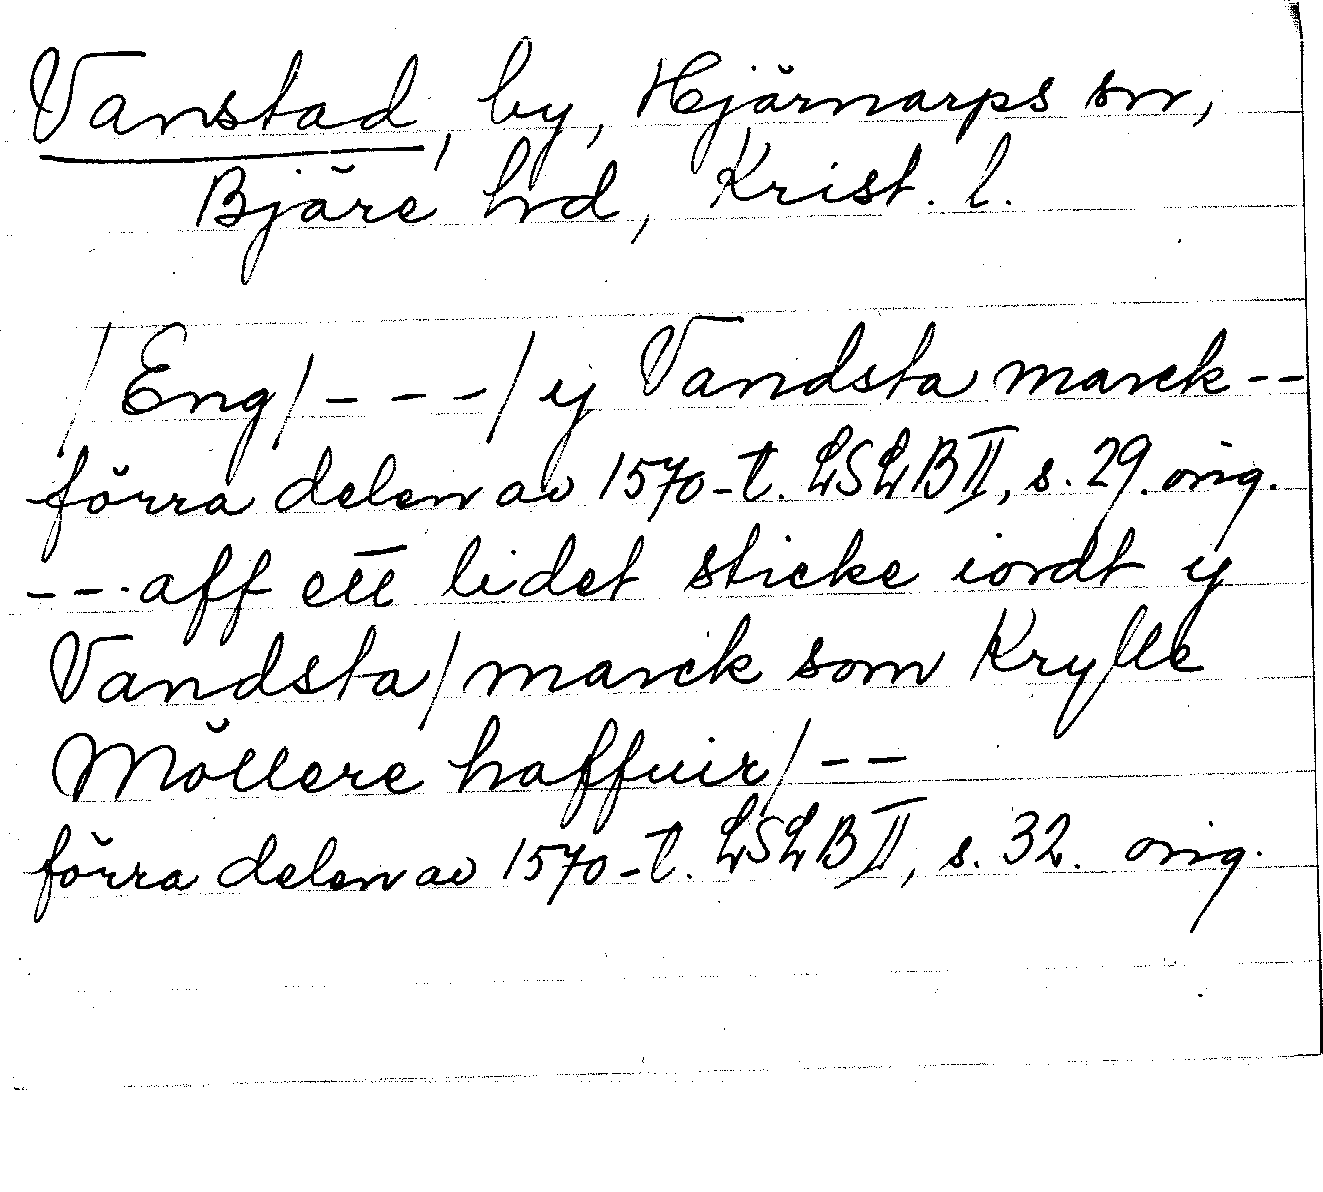 Vanstad, by, Hjärnarps sn,
Bjäre hd, Krist. l.
/Eng/ - - - / ij Vandsta marck - -
förra delen av 1570-t. LSLB II, s. 29. orig.
- - - aff ett lidet sticke iordt ij
Vandsta / marck som Krylle
Möllere haffuir / - -
förra delen av 1570-t. LSLB II, s. 32. orig.